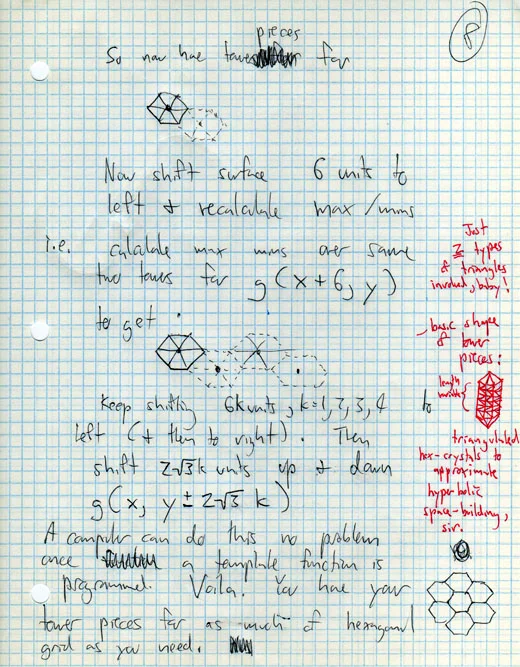 8
pieces
So now have tower for
Now shift surface 6 units to
left & recalculate max/mins
i.e. calculate max mins over same
two towers for g(x+6, y)
to get :
Keep shifting 6k units, k=1, 2, 3, 4 to
left (& then to right). Then
shift 2√3k units up & down
g(x, y ± 2√3 k)
A computer can do this no problem
once a template function is
programmed. Voila! You have your
tower pieces for as much of hexagonal
grid as you need.
Just
2 types
of triangles
involved, baby!
basic shape
of tower
pieces:
length
varies
triangulated
hex-crystals to
approximate
hyperbolic
space-building,
sir.